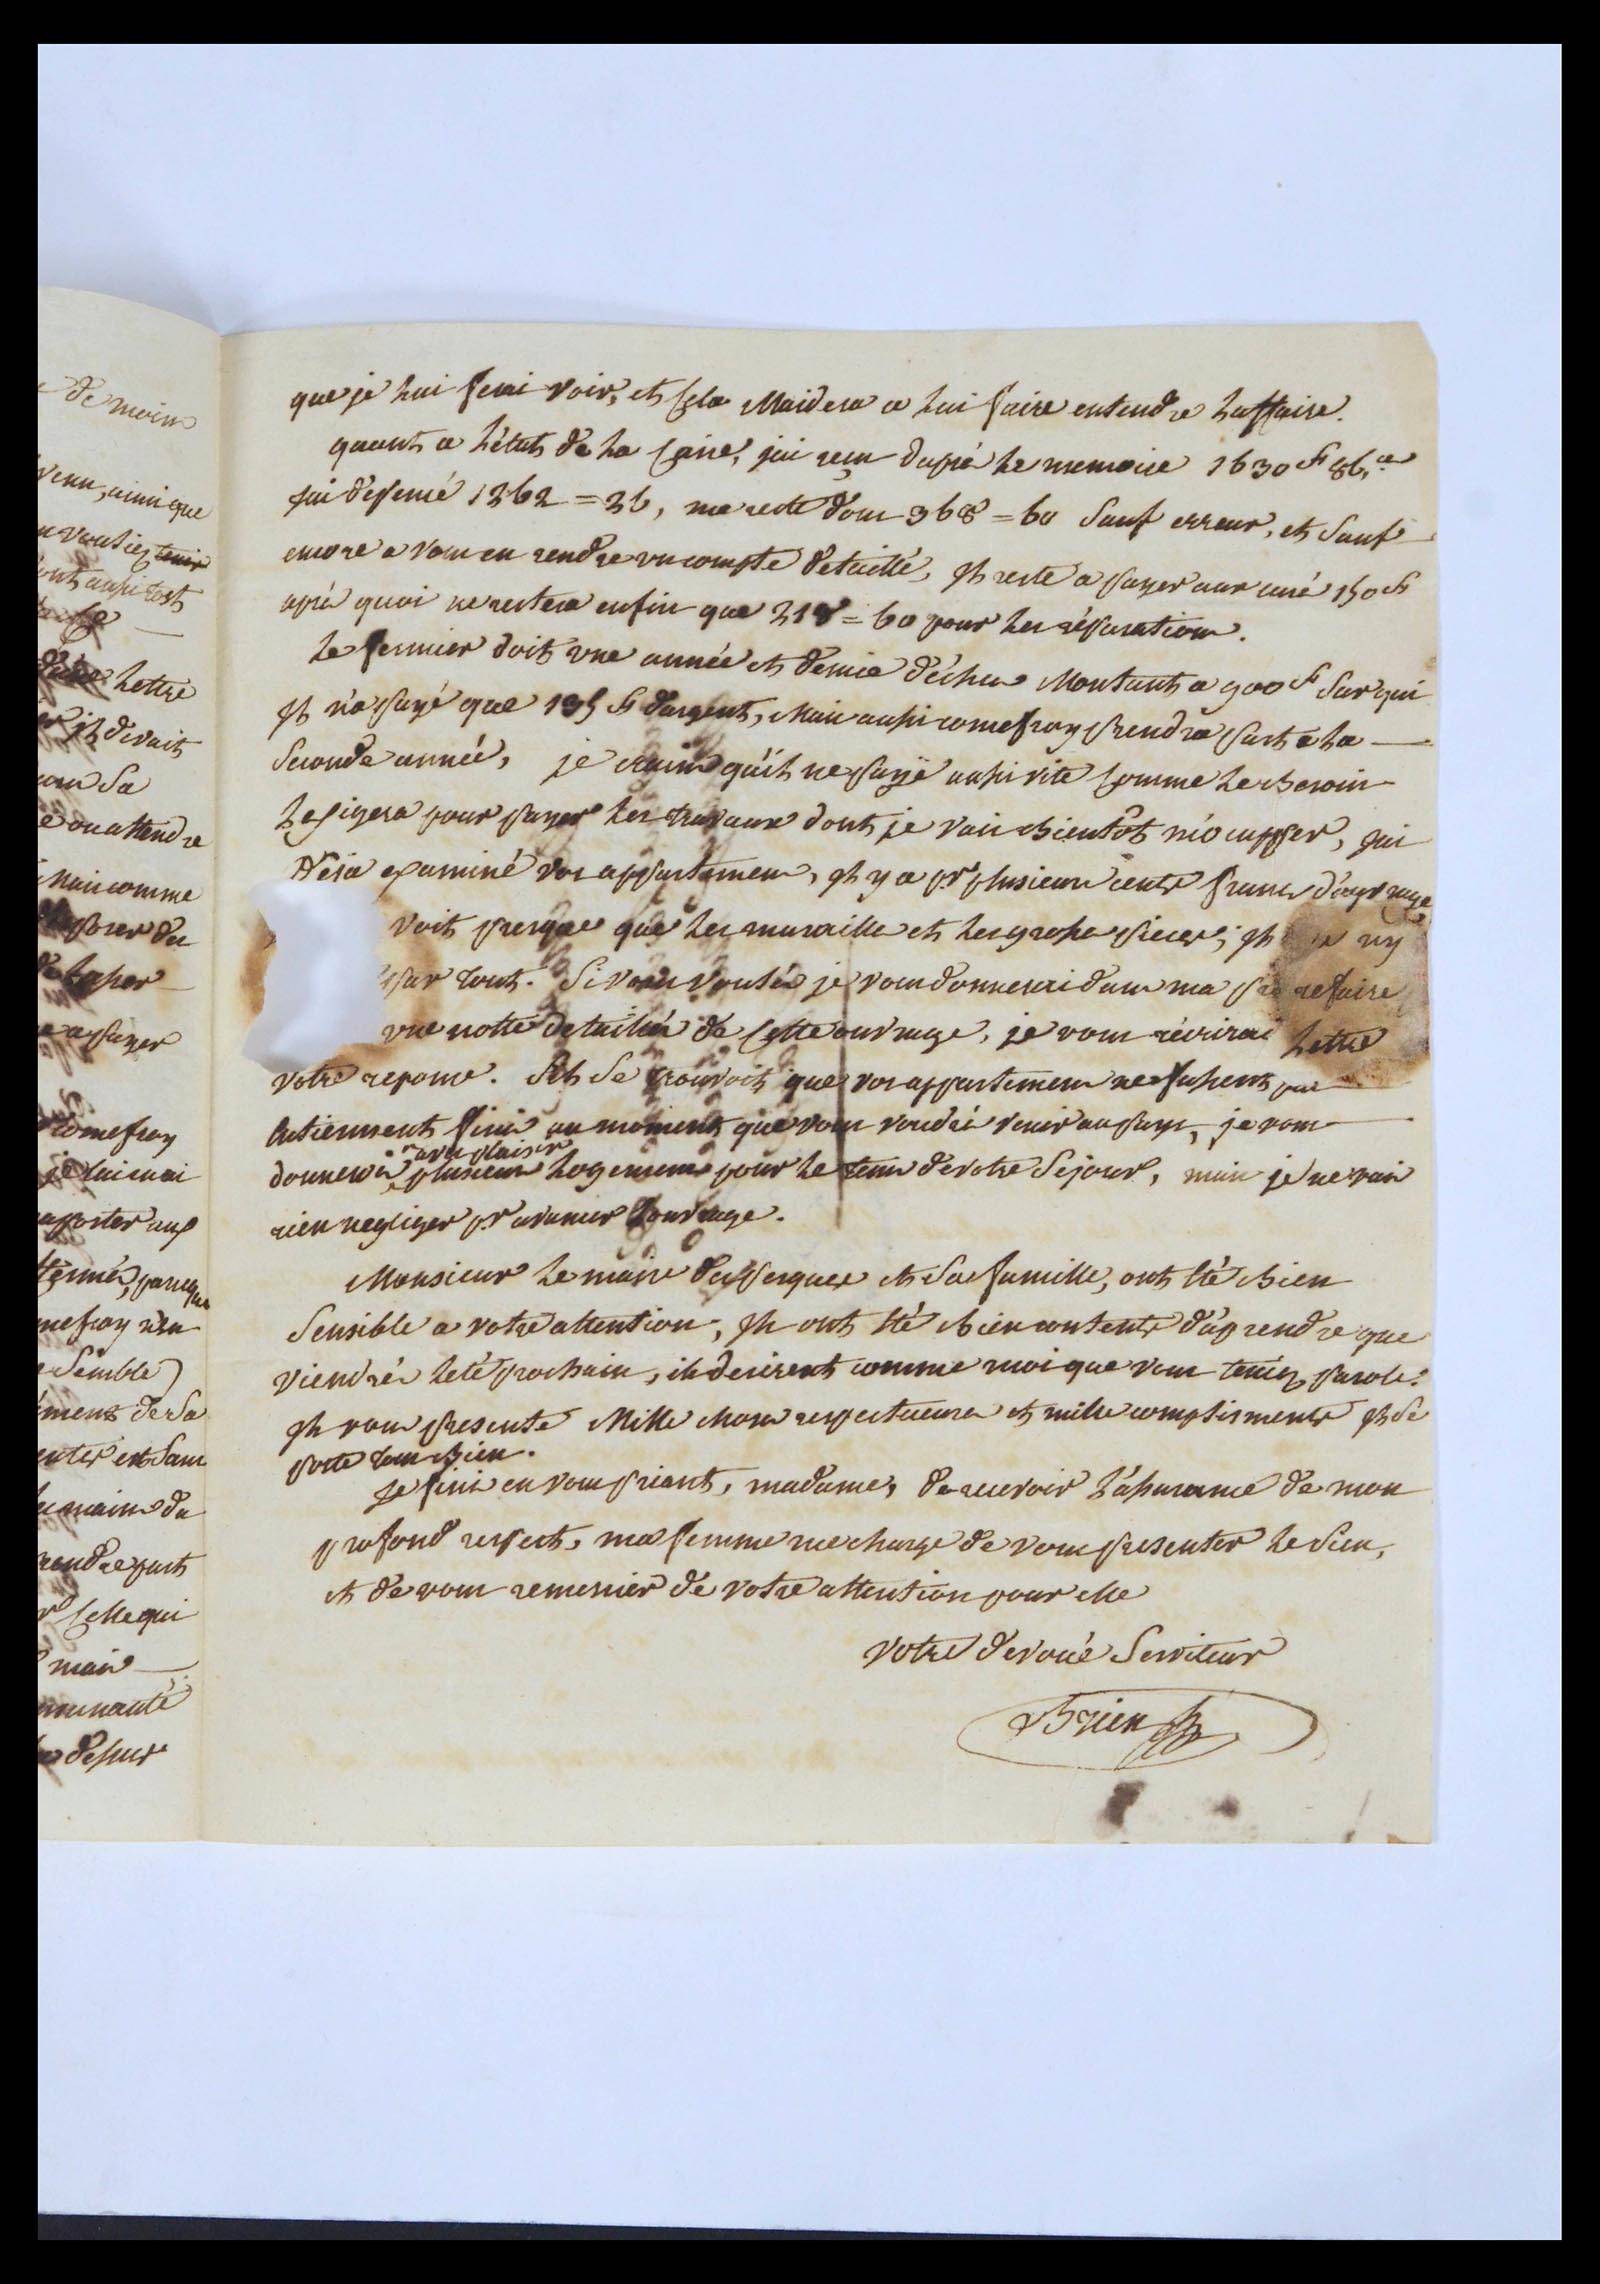 de moins
venu, ainsi que
n voutiez tenir
ont aussitost
lettre
il devait
sa
e ou attendre
Mais comme
poser du
a payer
comefroy
je lui irai
aporter aux
parceque
mefroy n'en
semble)
ément de sa
enter est sans
la main du
rendre part
celle qui
mais
munauté
dessus
que je lui ferai voir, et cela Maidera a lui faire entendre laffaire.
quant a l'état de la caisse, jai reçu daprés le memoire 1630 f 86 c
jai depensé 1262 = 26, me reste donc 368 = 60 sauf erreur, et sauf
encore a vous en rendre un compte detaillé, il reste a payer aux curé 150 f
aprés quoi ne restera enfin que 218 = 60 pour les réparations.
le fermier doit une année et demie d'échu Montant a 900 f sur qui
il n'a payé que 195 f d'argent, Mais aussi comefroy prendra part a la
seconde année, je crains qu'il ne paye aussi vite comme le besoin
lexigera pour payer les travaux dont je vais bientôt m'ocupper, jai
déja examiné vos appartemens, il y a pr plusieurs cents francs d'ouvrage
voit presque que les murailles et les grosses pieces; il ny
par tout. Si vous voulés je vous donnerai dans ma refaire
une notte detaillée de cette ouvrage, je vous écrirai lettre
votre reponse. Sil se trouvoit que vos appartemens ne fussent pas
entierement finis au moment que vous voudrés venir au pays, je vous
donnerai avec plaisir plusieurs logemens pour le tems de votre sejour, mais je ne vais
rien negliger pr avancer l'ouvrage.
Monsieur le maire desperques et sa famille, ont été bien
sensible a votre attention, ils ont été bien contents d'aprendre que
viendrés l'été prochain, ils desirent comme moi que vous teniez parole.
il vous presente Mille choses respectueuses et mille complisments il se
porte tous bien.
je finis en vous priant, madame, de recevoir l'assurance de mon
profond respect, ma femme me charge de vous presenter le sien,
et de vous remercier de votre attention pour elle
votre devoué serviteur
Brien